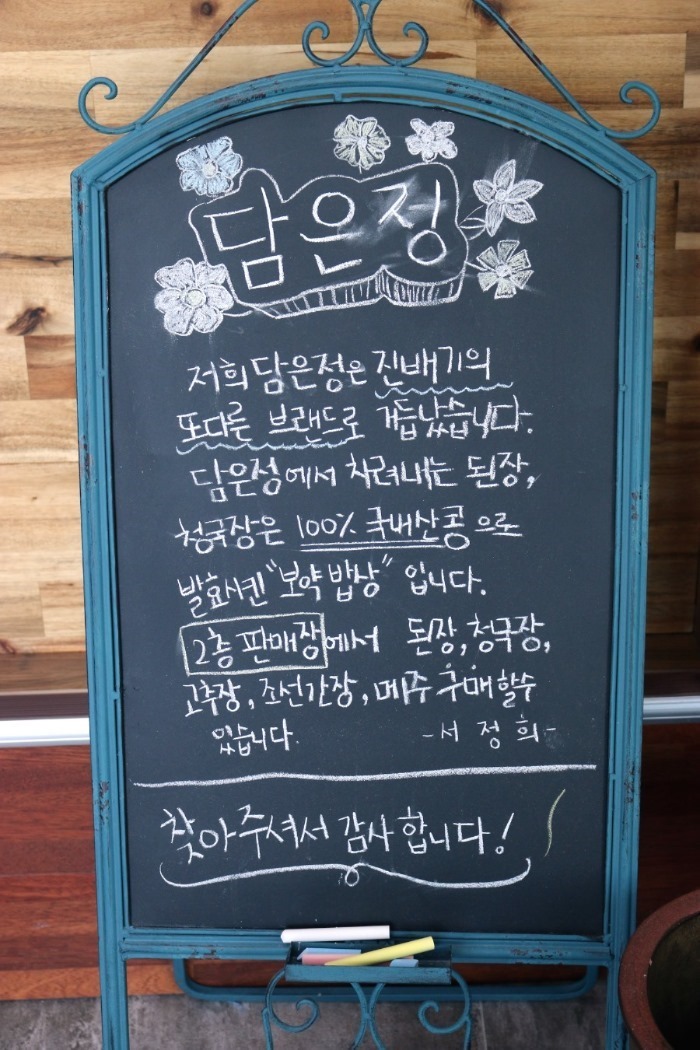 담은정
저희 담은정은 진배기의
또다른 브랜드로 거듭났습니다.
담은정에서 차려내는 된장,
청국장은 100% 국내산콩으로
발효시킨 "보약 밥상" 입니다.
2층 판매장에서 된장, 청국장,
고추장, 조선간장, 메주 구매할수
있습니다. -서정희-
찾아주셔서 감사합니다!